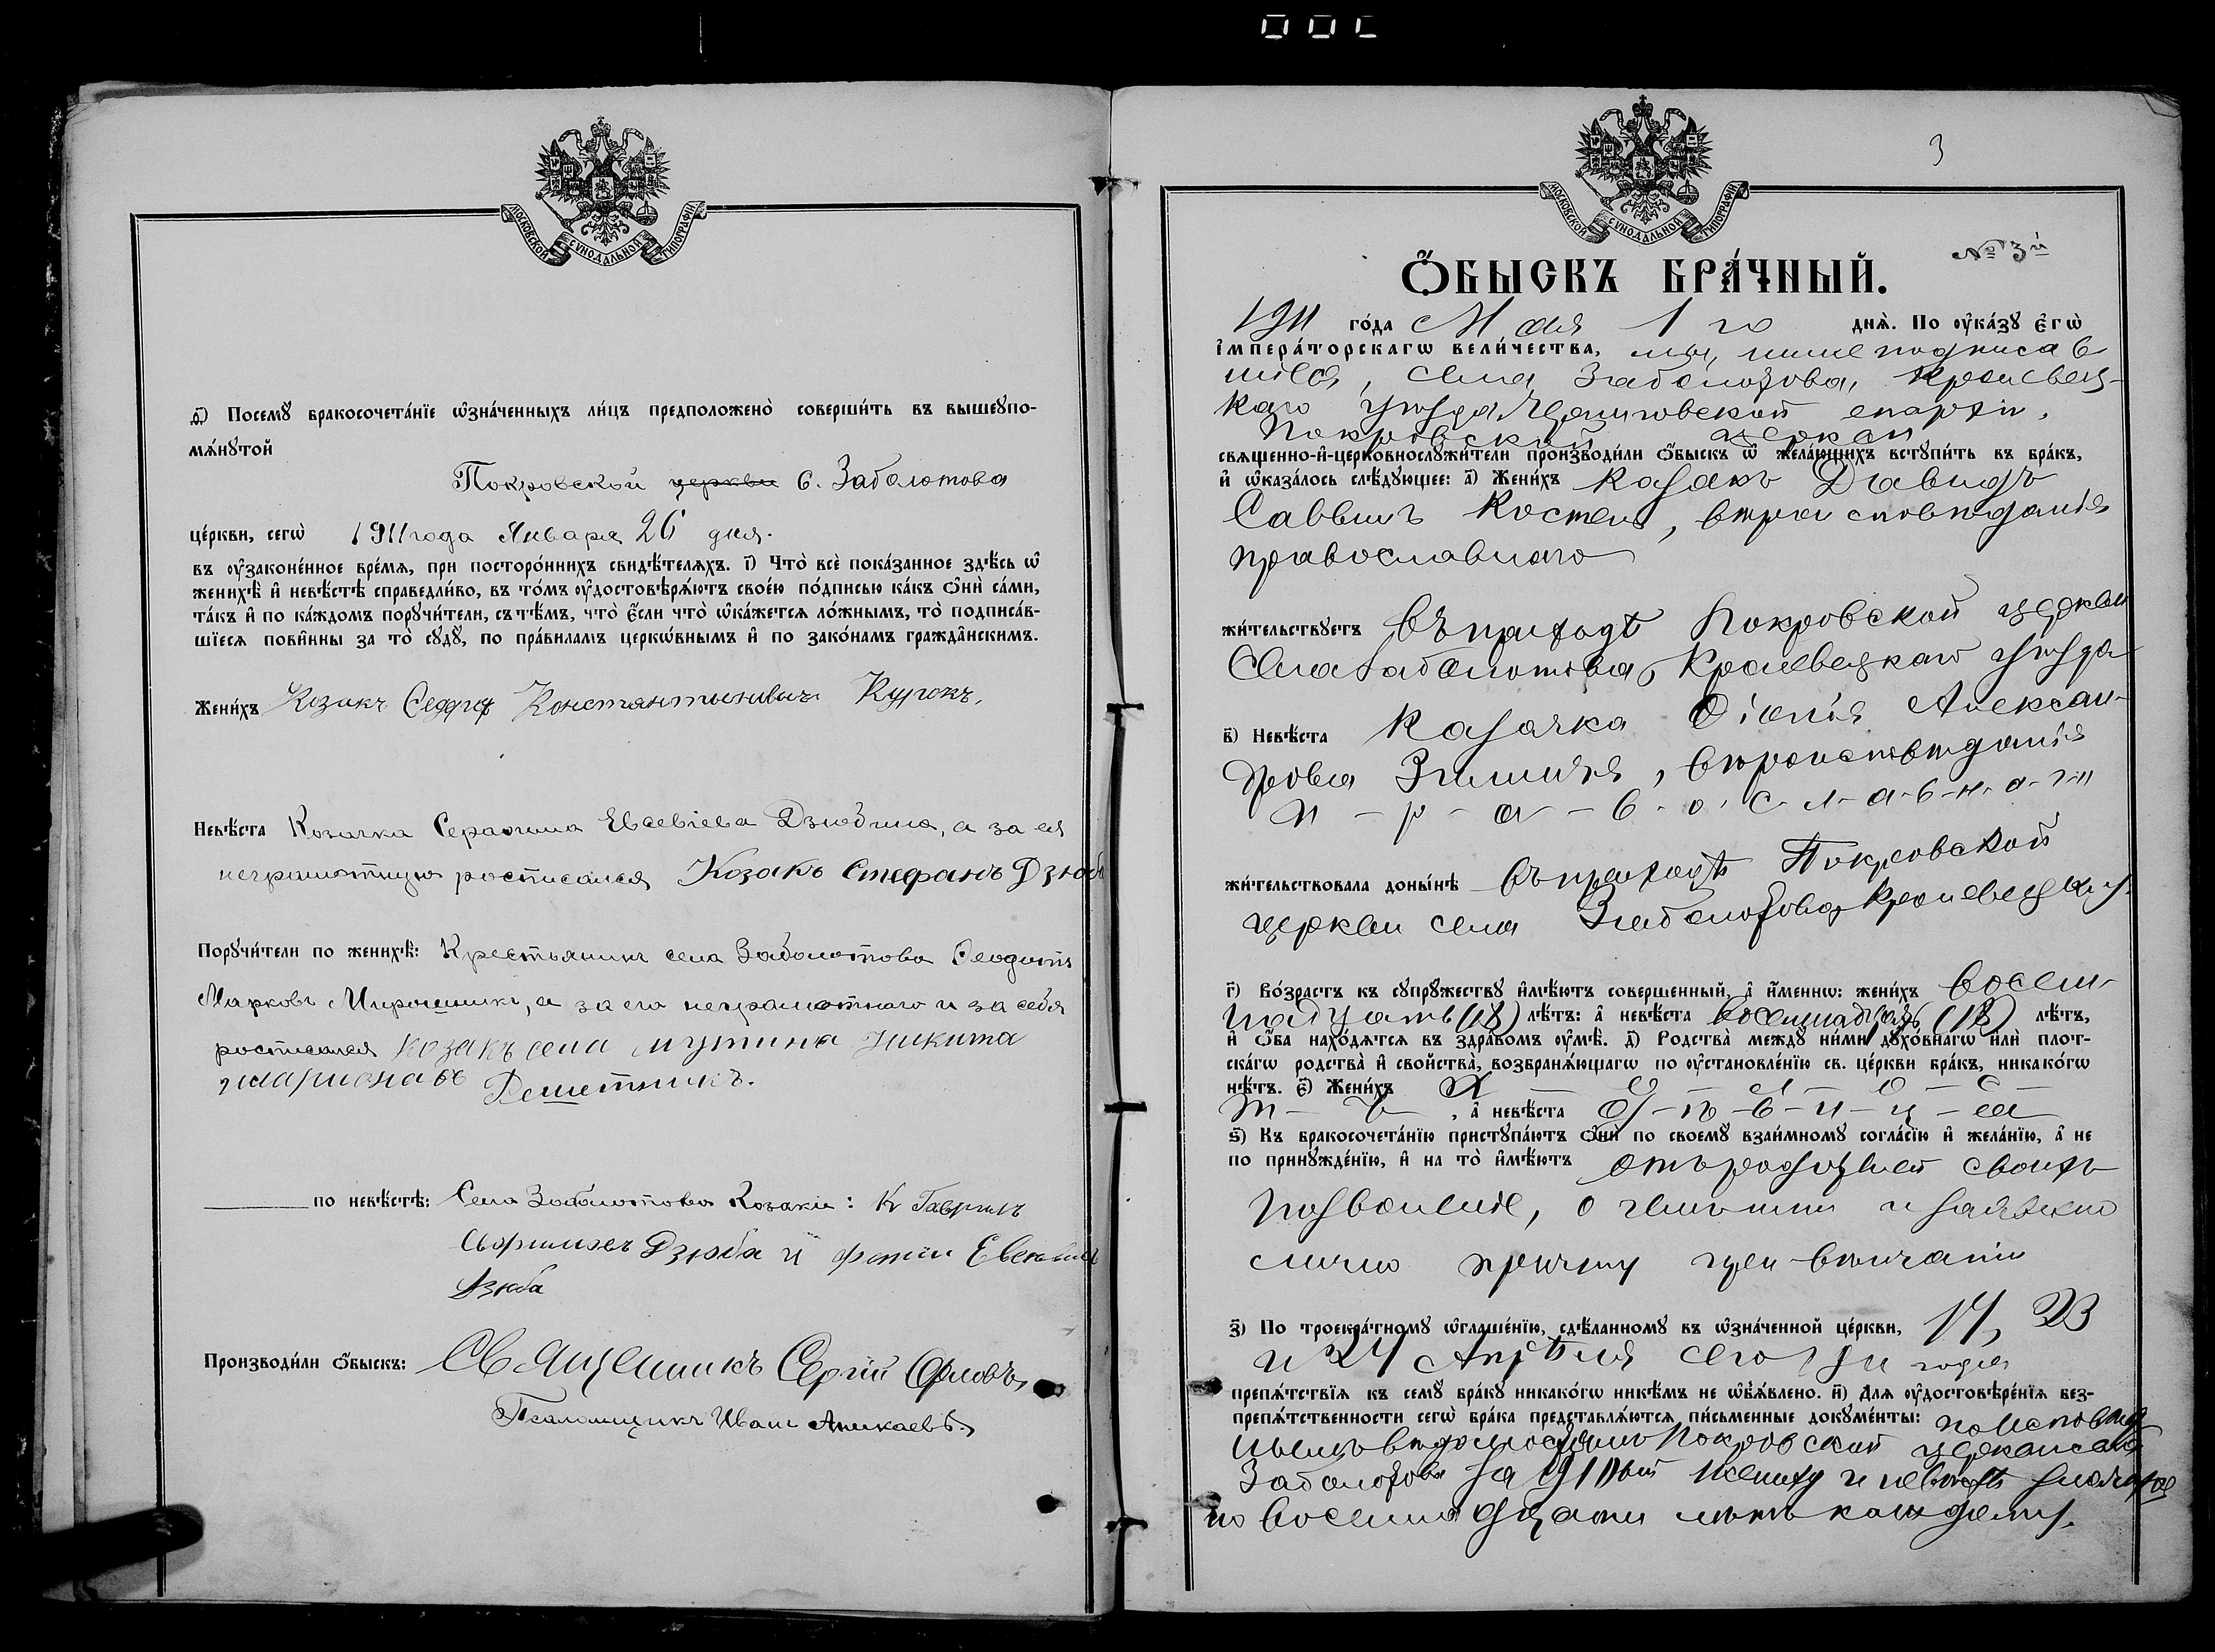 МОСКОВСКОЙ СѴНОДАЛЬНОЙ ТИПОГРАФІИ
д҃і) Посемꙋ̀ бракосочета́нїе ѡ҆зна́ченныхъ ли́цъ предположено̀ соверши́ть въ вышеꙋпо-
мѧ́нꙋтой
Покровской церкви с. Заболотова
це́ркви, сегѡ̀ 1911 года Января 26 дня.
въ ᲂу҆законе́нное вре́мѧ, при посторо́ннихъ свидѣ́телѧхъ. і҃) Что̀ всѐ пока́занное здѣ́сь ѡ҆
женихѣ̀ и҆ невѣ́стѣ справедли́во, въ то́мъ ᲂу҆достовѣрѧ́ютъ свое́ю по́дписью ка́къ ѻ҆нѝ са́ми,
та́къ и҆ по ка́ждомъ порꙋчи́тели, съ тѣ́мъ, что̀ є҆́сли что̀ ѡ҆ка́жетсѧ ло́жнымъ, то̀ подписа́в-
шїесѧ пови́нны за то̀ сꙋдꙋ̀, по пра́виламъ церкѡ́внымъ и҆ по зако́намъ гражда́нскимъ.
Жени́хъ Козакъ Константиновичъ Курокъ,
Невѣ́ста Козачка Евсевіева Дзюбина, а за ея
неграмотную росписался Козакъ Стефанъ Дзюба
Порꙋчи́тели по женихѣ̀: Крестьянинъ села Заболотова Ѳеодотъ
Марковъ Мирошникъ, а за его неграмотнаго и за себя
росписался козакъ села Мутина Никита
Иларионовъ Решетникъ.
по невѣ́стѣ: Села Заболотова Козаки: К Гавриилъ
Дзюба и Фотий
Дзюба
Производи́ли ѻ҆́быскъ: Священникъ Сергій Орловъ,
Псаломщикъ Иванъ Аникаевъ.
3
МОСКОВСКОЙ СѴНОДАЛЬНОЙ ТИПОГРАФІИ
№ 3й
Ѻ҆́БЫСКЪ БРА́ЧНЫЙ.
1911 го́да Мая 1 го днѧ̀. По ᲂу҆ка́зꙋ є҆гѡ̀
і҆мпера́торскагѡ вели́чества, мы, ниже подписав
шіеся, села Заболотова, Кролевец-
каго уезда Черниговской епархіи,
Покровской церкви
свѧще́нно-и҆-церко́внослꙋжи́тели производи́ли ѻ҆́быскъ ѡ҆ жела́ющихъ встꙋпи́ть въ бра́къ,
и҆ ѡ҆каза́лось слѣ́дꙋющее: а҃) Жени́хъ Казакъ Давидъ
Саввинъ Костенъ, вѣроисповѣданія
православнаго
жи́тельствꙋетъ въ приходѣ Покровской церкви
Села Заболотова, Кролевецкаго уѣзда
в҃) Невѣ́ста Казачка Александ-
рова вѣроисповѣданія
п-р-а-в-о-с-л-а-в-н-а-го
жи́тельствовала доны́нѣ въ приходѣ Покровской
церкви села Заболотова, Кролевецк. у.
г҃) Во́зрастъ къ сꙋпрꙋ́жествꙋ и҆мѣ́ютъ соверше́нный, а҆ и҆́меннѡ: жени́хъ восем-
надцать (18) лѣ́тъ: а҆ невѣ́ста восемнадцать (18) лѣ́тъ,
и҆ ѻ҆́ба нахо́дѧтсѧ въ здра́вомъ ᲂу҆мѣ̀. д҃) Родства̀ междꙋ ни́ми дꙋхо́внагѡ и҆лѝ плот-
ска́гѡ родства̀ и҆ свойства̀, возбранѧ́ющагѡ по ᲂу҆становле́нїю св. це́ркви бра́къ, никако́гѡ
нѣ́тъ. є҃) Жени́хъ Х-о-л-о-с-
т-ъ, а҆ невѣ́ста д-ѣ-в-и-ц-а
ѕ҃) Къ бракосочета́нїю пристꙋпа́ютъ ѻ҆нѝ по своемꙋ̀ взаи́мномꙋ согла́сїю и҆ жела́нїю, а҆ не
по принꙋжде́нїю, и҆ на то̀ и҆мѣ́ютъ отъ родителей своихъ
позволеніе, о чемъ ими изъявлено
лично причту при вѣнчаніи
з҃) По троекра́тномꙋ ѡ҆глаше́нїю, сдѣ́ланномꙋ въ ѡ҆зна́ченной це́ркви, 17, 23
и 24 Апрѣля сего года
препѧ́тствїѧ къ семꙋ̀ бра́кꙋ никако́гѡ никѣ́мъ не ѡ҆б̾ѧ́влено. и҃) Длѧ ᲂу҆достовѣре́нїѧ без-
препѧ́тственности сегѡ̀ бра́ка представлѧ́ютсѧ пи́сьменные докꙋме́нты: по исповѣд
нымъ вѣдомостямъ Покровской церкви села
Заболотова за 1910 жениху и невѣстѣ значится
по восемнадцати лѣтъ каждому.